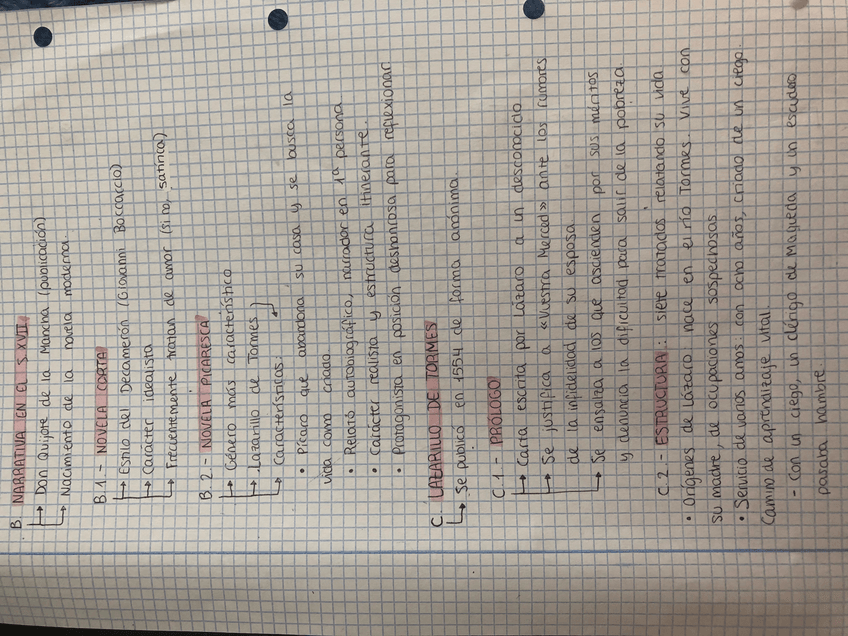 B. NARRATIVA EN EL S.XVII
→ Don Quijote de la Mancha (publicación)
→ Nacimiento de la novela moderna.
B.1 - NOVELA CORTA
→ Estilo del Decamerón (Giovanni Boccaccio)
→ Carácter idealista
→ Frecuentemente tratan de amor (si no, satírica)
B.2 - NOVELA PICARESCA
→ Género más característico
→ Lazarillo de Tormes
→ Características:
• Pícaro que abandona su casa y se busca la
vida como criado.
• Relato autobiográfico, narrador en 1ª persona
• Carácter realista y estructura itinerante.
• Protagonista en posición deshonrosa para reflexionar
C. LAZARILLO DE TORMES
→ Se publicó en 1554 de forma anónima.
C.1 - PRÓLOGO
→ Carta escrita por Lázaro a un desconocido
→ Se justifica a «Vuestra Merced» ante los rumores
de la infidelidad de su esposa.
→ Se ensalza a los que ascienden por sus méritos
y denuncia la dificultad para salir de la pobreza
C.2 - ESTRUCTURA: siete tratados relatando su vida
• Orígenes de Lázaro: nace en el río Tormes. Vive con
su madre, de ocupaciones sospechosas
• Servicio de varios amos: con ocho años, criado de un ciego.
Camino de aprendizaje vital.
- Con un ciego, un clérigo de Maqueda y un escudero
pasaba hambre.